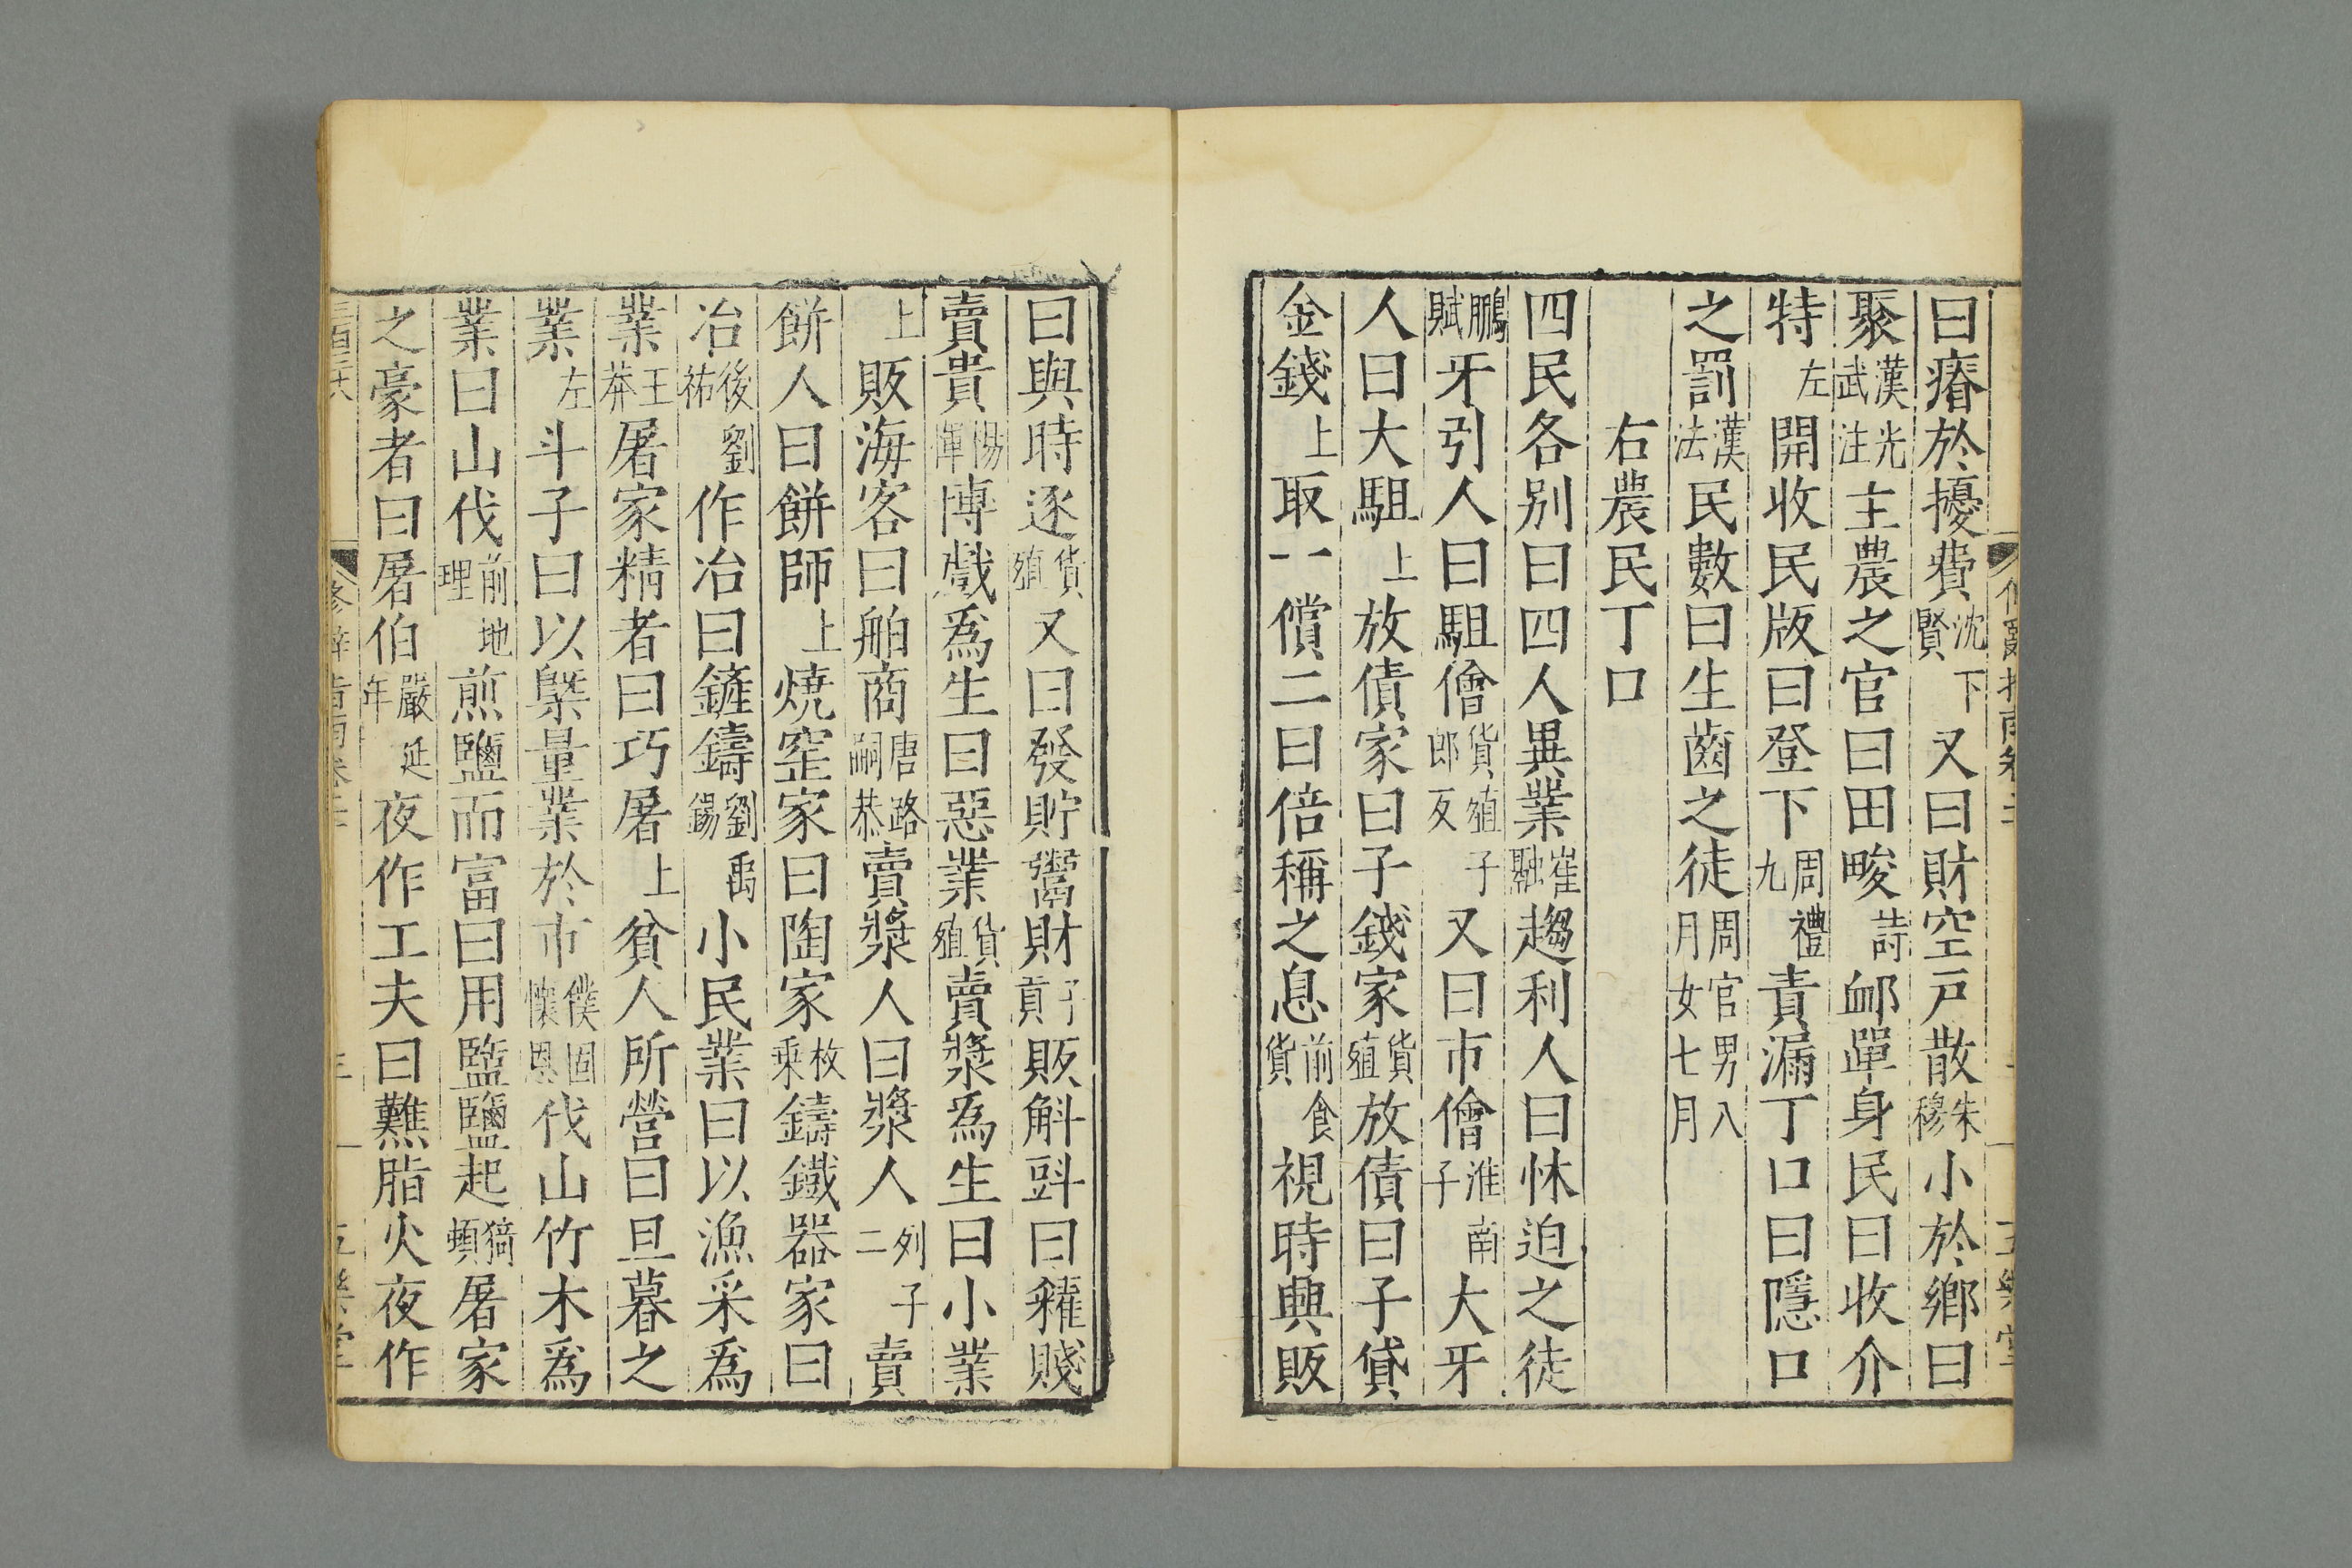 曰瘠於擾費沈賢下又曰財空戸散朱穆小於鄉曰
聚漢武光注主農之官曰田畯詩䘏單身民曰收介
特左開收民版曰登下周九禮責漏丁口曰隱口
之罰漢法民數曰生齒之徒周官男八月女七月
右農民丁口
四民各别曰四人異業崔融趨利人曰怵迫之徒
鵬賦牙引人曰駔儈貨郎殖反子又曰市儈淮子南大牙
人曰大駔上放債家曰子錢家貨殖放債曰子貸
金錢上取一償二曰倍稱之息前貨食視時興販
曰與時逐貨殖又曰發貯鬻財子貢販斛㪷曰糴賤
賣貴楊惲博戲爲生曰惡業貨殖賣漿爲生曰小業
上販海客曰舶商唐嗣路恭賣漿人曰漿人列二子賣
餅人曰餅師上燒窑家曰陶家枚乗鑄鐵器家曰
冶後祐劉作冶曰鏟鑄劉錫禹小民業曰以漁采爲
業王莽屠家精者曰巧屠上貧人所營曰旦暮之
業左斗子曰以槩量業於市僕懷固恩伐山竹木爲
業曰山伐前理地煎鹽而富曰用鹽鹽起猗頓屠家
之豪者曰屠伯嚴年延夜作工夫曰難脂火夜作